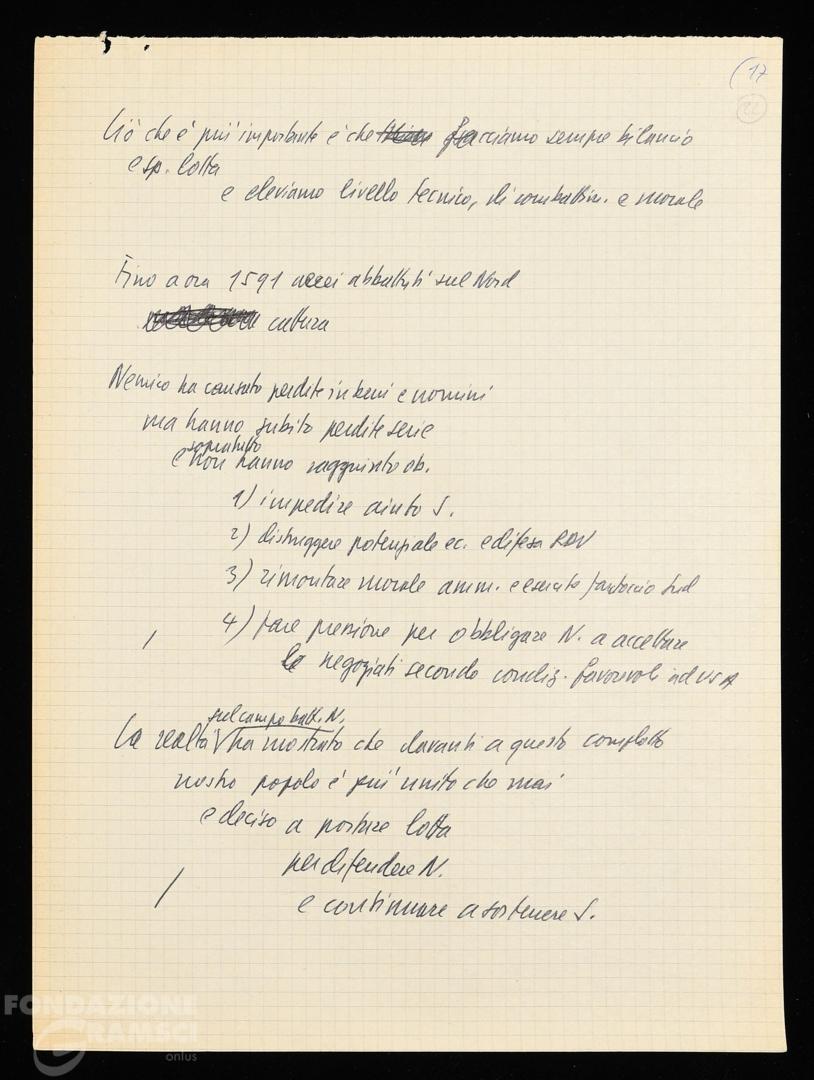 (17
22
Ciò che è più importante è che facciamo sempre bilancio
e sp. lotta
e eleviamo livello tecnico, di combattim. e morale
Fino a ora 1591 aerei abbattuti sul Nord
cattura
Nemico ha causato perdite in beni e uomini
ma hanno subito perdite serie
soprattutto
e non hanno raggiunto ob.
1) impedire aiuto S.
2) distruggere potenziale ec. e difesa RDV
3) rimontare morale amm. e esercito fantoccio Sud
4) fare pressione per obbligare N. a accettare
negoziati secondo condiz. favorevoli ad USA
sul campo batt. N.
La realtà ha mostrato che davanti a questo complotto
nostro popolo è più unito che mai
e deciso a portare lotta
per difendere N.
e continuare a sostenere S.
FONDAZIONE
GRAMSCI
onlus